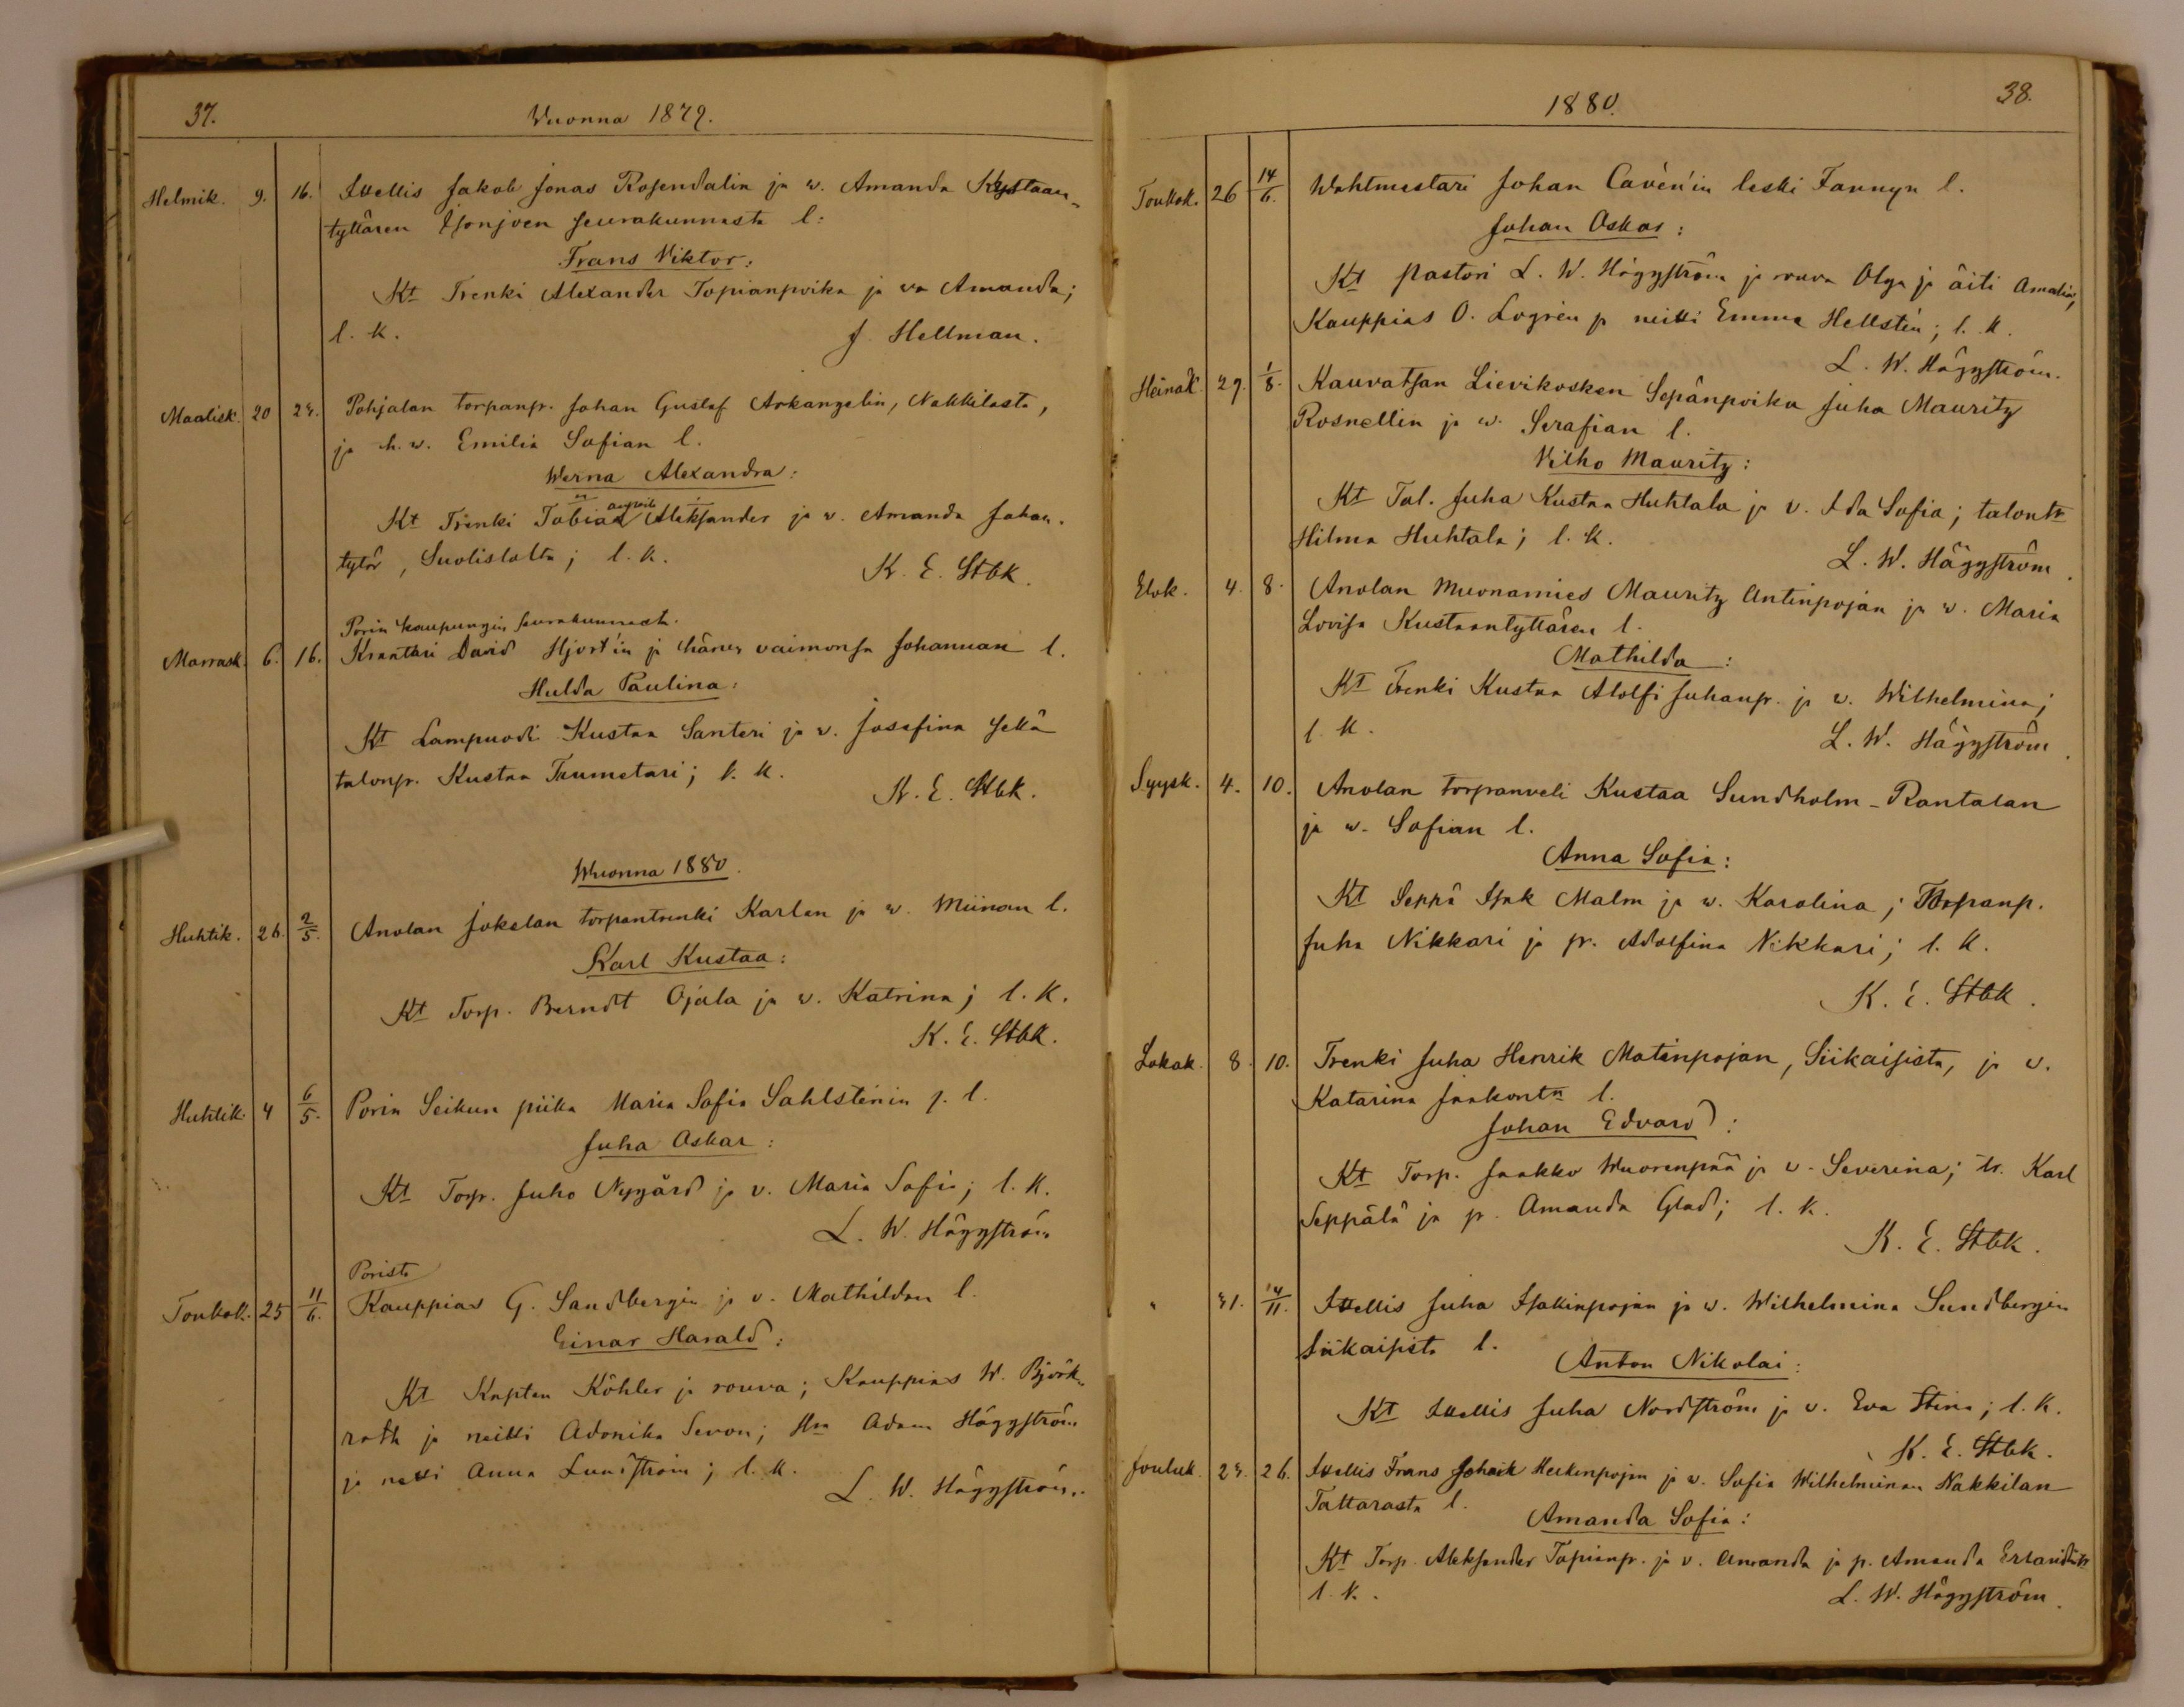 37.
Vuonna 1879.
Helmik. 9. 16. Itellis Jakob Jonas Rosendalin ja w. Amanda Kustaan-
tyttären Isonjoen seurakunnasta l:
Frans Viktor:
Kt Trenki Alexander Topianpoika ja va Amanda;
l. k. J. Hellman.
Maalisk. 20 23. Pohjalan torpanp. Johan Gustaf Arkangelin, Nakkilasta,
ja h. w. Emilia Sofian l.
Werna Alexandra:
Kt Trenki Tobias Aleksander ja w. Amanda Johan.
tytär, Suolistolta; l. k. K. E. Stbk.
Porin kaupungin seurakunnasta.
Marrask. 6. 16. Kraatari David Hjort'in ja hänen vaimonsa Johannan l.
Hulda Paulina:
Kt Lampuodi Kustaa Santeri ja w. Josefina sekä
talonp. Kustaa Tuumetari; l. k. K. E. Stbk.
Wuonna 1880.
Huhtik. 26. 2/5. Anolan Jokelan torpantrenki Karlen ja w. Miinan l.
Karl Kustaa:
Kt Torp. Berndt Ojala ja w. Katrina; l. k.
K. E. Stbk.
Huhtik. 4 6/5. Porin Seikun piika Maria Sofia Sahlstenin p. l.
Juha Oskar:
Kt Torp. Juho Nygård ja v. Maria Sofia; l. k.
L. W. Häggström
Porista
Toukok. 25 11/6. Kauppias G. Sandbergin ja v. Mathildan l.
Einar Harald:
Kt Kapten Köhler ja rouva; Kauppias W. Björk-
roth ja neitti Adonika Sevon; Hra Adam Häggström
ja neiti Anna Lundström; l. k. L. W. Häggström.
1880.
38.
Toukok. 26 14/6. Wahtmestari Johan Cavén'in leski Fannyn l.
Johan Oskar:
Kt Pastori L. W. Häggström ja rouva Olga ja äiti Amalia,
Kauppias O. Logrén ja neitti Emma Hellstén; l. k.
L. W. Häggström.
Heinäk. 29. 1/8. Kauvatsan Lievikosken Sepänpoika Juha Mauritz
Rosnellin ja w. Serafian l.
Vilho Mauritz:
Kt Tal. Juha Kustaa Huhtala ja v. Ida Sofia; talontr
Hilma Huhtala; l. k.
L. W. Häggström.
Elok. 4. 8. Anolan Muonamies Mauritz Antinpojan ja w. Maria
Lovisa Kustaantyttären l.
Mathilda:
Kt Trenki Kustaa Adolfi Juhanp. ja w. Wilhelmina;
l. k. L. W. Häggström.
Syysk. 4. 10. Anolan torpanveli Kustaa Sundholm-Rantalan
ja w. Sofian l.
Anna Sofia:
Kt Seppä Isak Malm ja w. Karolina; Torpanp.
Juha Nikkari ja p. Adolfina Nikkari; l. k.
K. E. Stbk.
Lokak. 8. 10. Trenki Juha Henrik Matinpojan, Siikaisista, ja w.
Katarina Jaakontr l.
Johan Edvard:
Kt Torp. Jaakko Wuorenpää ja v. Severina; tr. Karl
Seppälä ja p. Amanda Glad; l. k.
K. E. Stbk.
" 31. 14/11. Itellis Juha Isakinpojan ja w. Wilhelmina Sundbergin
Siikaisista l.
Anton Nikolai:
Kt Itellis Juha Nordström ja v. Eva Stina; l. k.
K. E. Stbk.
Jouluk. 23. 26. Itellis Frans Heikinpojan ja w. Sofia Wilhelminan Nakkilan
Tattarasta l.
Amanda Sofia:
Kt Torp. Aleksander Topianp. ja v. Amanda ja p. Amanda
l. k. L. W. Häggström.